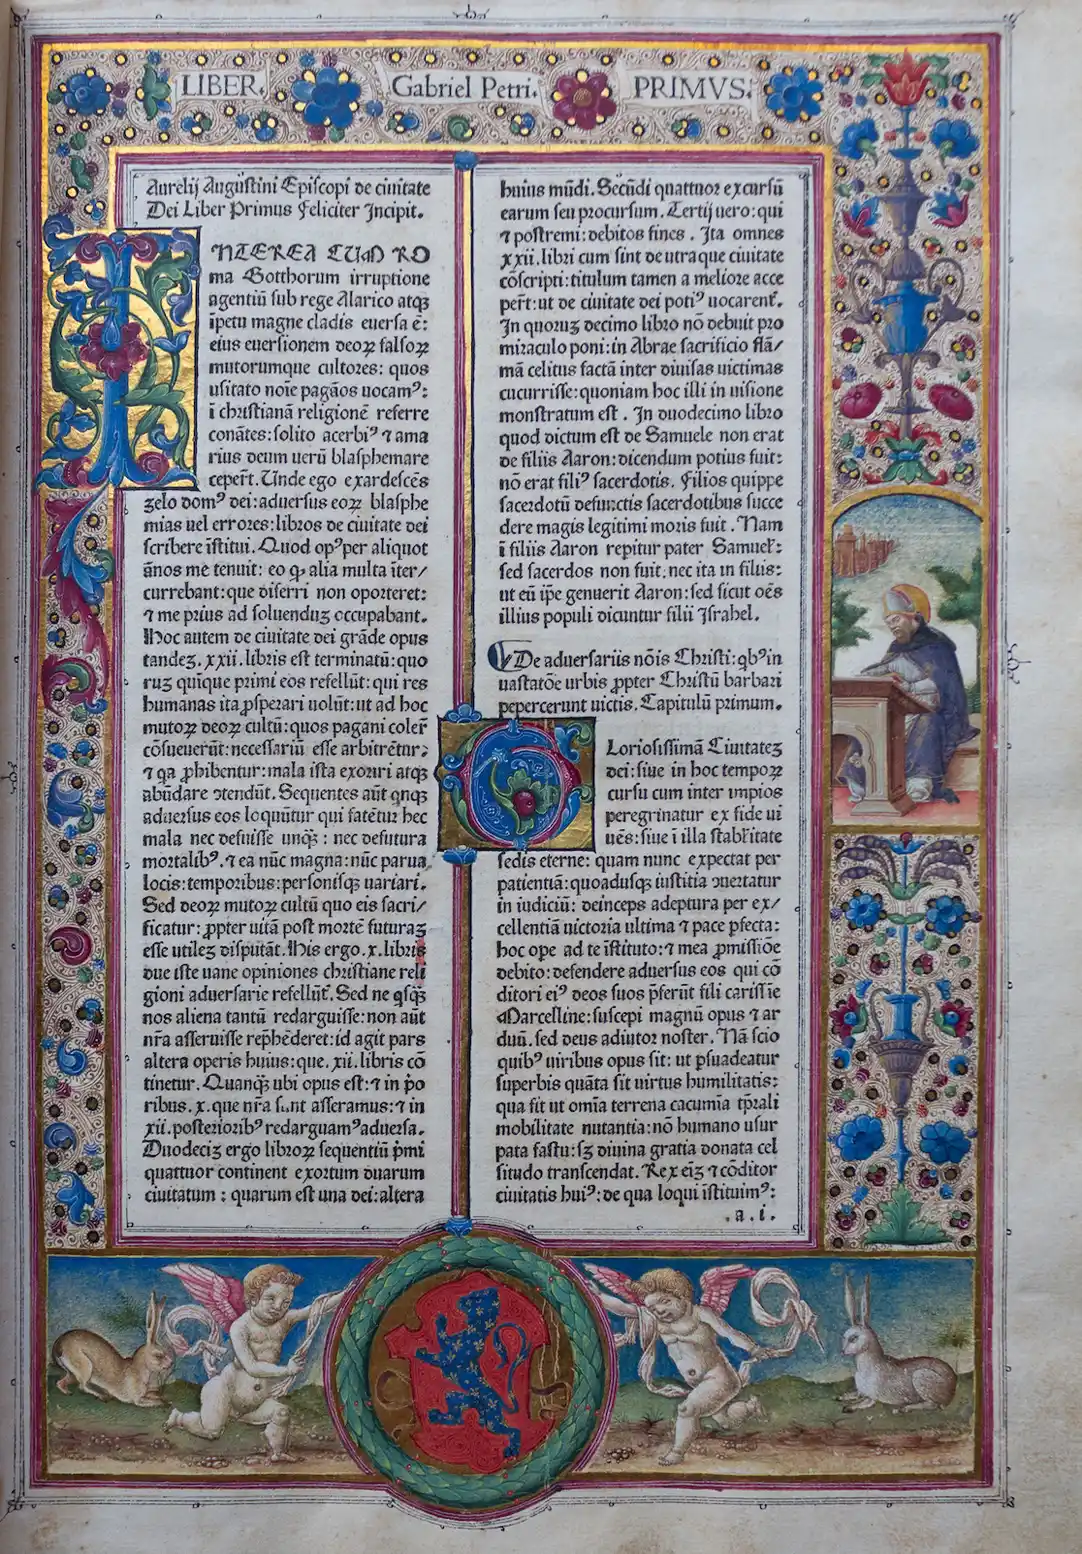 LIBER. Gabriel Petri. PRIMVS.
Aurelij Augustini Episcopi de ciuitate
Dei Liber Primus feliciter Incipit.
INTEREA CUM RO
ma Gotthorum irruptione
agentiũ sub rege Alarico atqꝫ
ĩpetu magne cladis euersa ẽ:
eius euersionem deoꝝ falsoꝝ
mutorumque cultores: quos
usitato noĩe pagãos uocamꝰ:
ĩ christianã religionẽ referre
conãtes: solito acerbiꝰ ⁊ ama
rius deum uerũ blasphemare
ceper̃t. Unde ego exardescẽs
zelo domꝰ dei: aduersus eoꝝ blasphe
mias uel errores: libros de ciuitate dei
scribere ĩstitui. Quod opꝰ per aliquot
ãnos me tenuit: eo ꝙ alia multa ĩter/
currebant: que differri non oporteret:
⁊ me prius ad soluenduꝫ occupabant.
Hoc autem de ciuitate dei grãde opus
tandeꝫ .xxii. libris est terminatũ: quo
ruꝫ quĩque primi eos refellũt: qui res
humanas ita ꝓsperari uolũt: ut ad hoc
mutoꝝ deoꝝ cultũ: quos pagani coler̃
cõsueuerũt: necessariũ esse arbitrẽtur:
⁊ qa ꝓhibentur: mala ista exoriri atqꝫ
abũdare ꝯtendũt. Sequentes aũt qnqꝫ
aduersus eos loquũtur qui fatẽtur hec
mala nec defuisse unqꝫ: nec defutura
mortalibꝰ. ⁊ ea nũc magna: nũc parua
locis: temporibus: personisqꝫ uariari.
Sed deoꝝ mutoꝝ cultũ quo eis sacri/
ficatur: ꝓpter uitã post mortẽ futuraꝫ
esse utileꝫ disputãt. His ergo .x. libris
due iste uane opiniones christiane reli
gioni aduersarie refellũt̃. Sed ne qsqꝫ
nos aliena tantũ redarguisse: non aũt
nr̃a asseruisse rep̃hẽderet: id agit pars
altera operis huius: que .xii. libris cõ
tinetur. Quanqꝫ ubi opus est: ⁊ in p̃o
ribus .x. que nr̃a sunt asseramus: ⁊ in
xii. posterioribꝰ redarguamꝰ aduersa.
Duodeciꝫ ergo libroꝝ sequentiũ p̃mi
quattuor continent exortum duarum
ciuitatum: quarum est una dei: altera
huius mũdi. Secũdi quattuor excursũ
earum seu procursum. Tertij uero: qui
⁊ postremi: debitos fines. Ita omnes
xxii. libri cum sint de utraque ciuitate
cõscripti: titulum tamen a meliore acce
per̃t: ut de ciuitate dei potiꝰ uocarent̃.
In quoruꝫ decimo libro nõ debuit pro
miraculo poni: in Abrae sacrificio flã/
mã celitus factã inter diuisas uictimas
cucurrisse: quoniam hoc illi in uisione
monstratum est. In duodecimo libro
quod dictum est de Samuele non erat
de filiis Aaron: dicendum potius fuit:
nõ erat filiꝰ sacerdotis. Filios quippe
sacerdotũ defunctis sacerdotibus succe
dere magis legitimi moris fuit. Nam
ĩ filiis Aaron repitur pater Samuel̃:
sed sacerdos non fuit: nec ita in filiis:
ut eũ ip̃e genuerit Aaron: sed sicut oẽs
illius populi dicuntur filii Israhel.
De aduersariis nõis Christi: qbꝰ in
uastatõe urbis ꝓpter Christũ barbari
pepercerunt uictis. Capitulũ primum.
GLoriosissimã Ciuitateꝫ
dei: siue in hoc tempoꝝ
cursu cum inter impios
peregrinatur ex fide ui
uẽs: siue ĩ illa stabl̃itate
sedis eterne: quam nunc expectat per
patientiã: quoadusqꝫ iustitia ꝯuertatur
in iudiciũ: deinceps adeptura per ex/
cellentiã uictoria ultima ⁊ pace ꝑfecta:
hoc ope ad te ĩstituto: ⁊ mea ꝓmissiõe
debito: defendere aduersus eos qui cõ
ditori eiꝰ deos suos p̃ferũt fili carissĩe
Marcelline: suscepi magnũ opus ⁊ ar
duũ. sed deus adiutor noster. Nã scio
quibꝰ uiribus opus sit: ut ꝑsuadeatur
superbis quãta sit uirtus humilitatis:
qua fit ut omĩa terrena cacumĩa tp̃rali
mobilitate nutantia: nõ humano usur
pata fastu: sꝫ diuina gratia donata cel
situdo transcendat. Rex eiꝫ ⁊ cõditor
ciuitatis huiꝰ: de qua loqui ĩstituimꝰ:
.a.i.